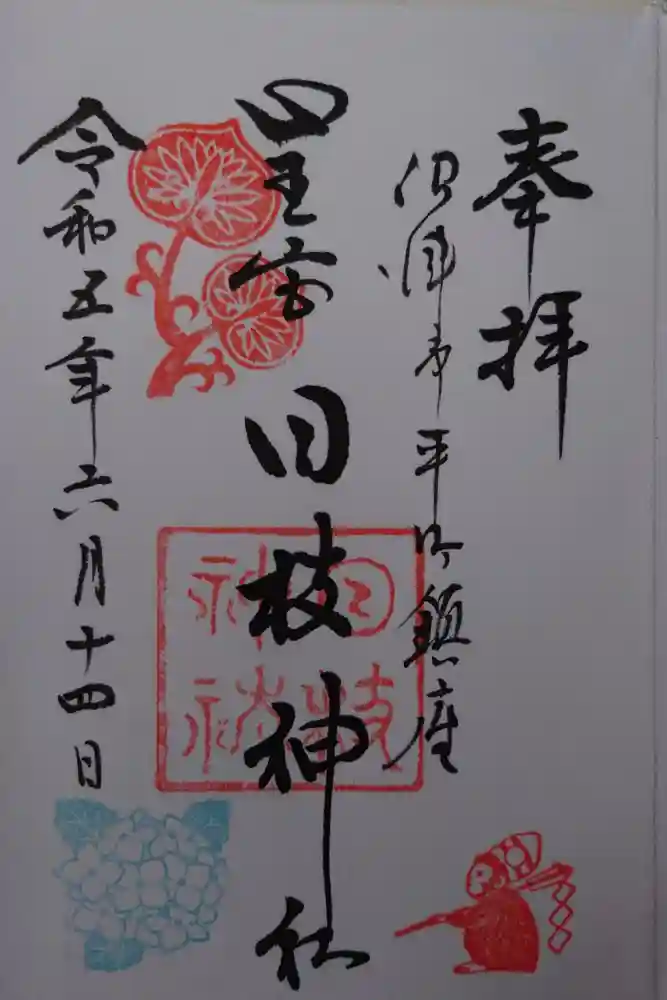 奉拝
沼津市平町鎮座
山王宮 日枝神社
日枝
神社
令和五年六月十四日